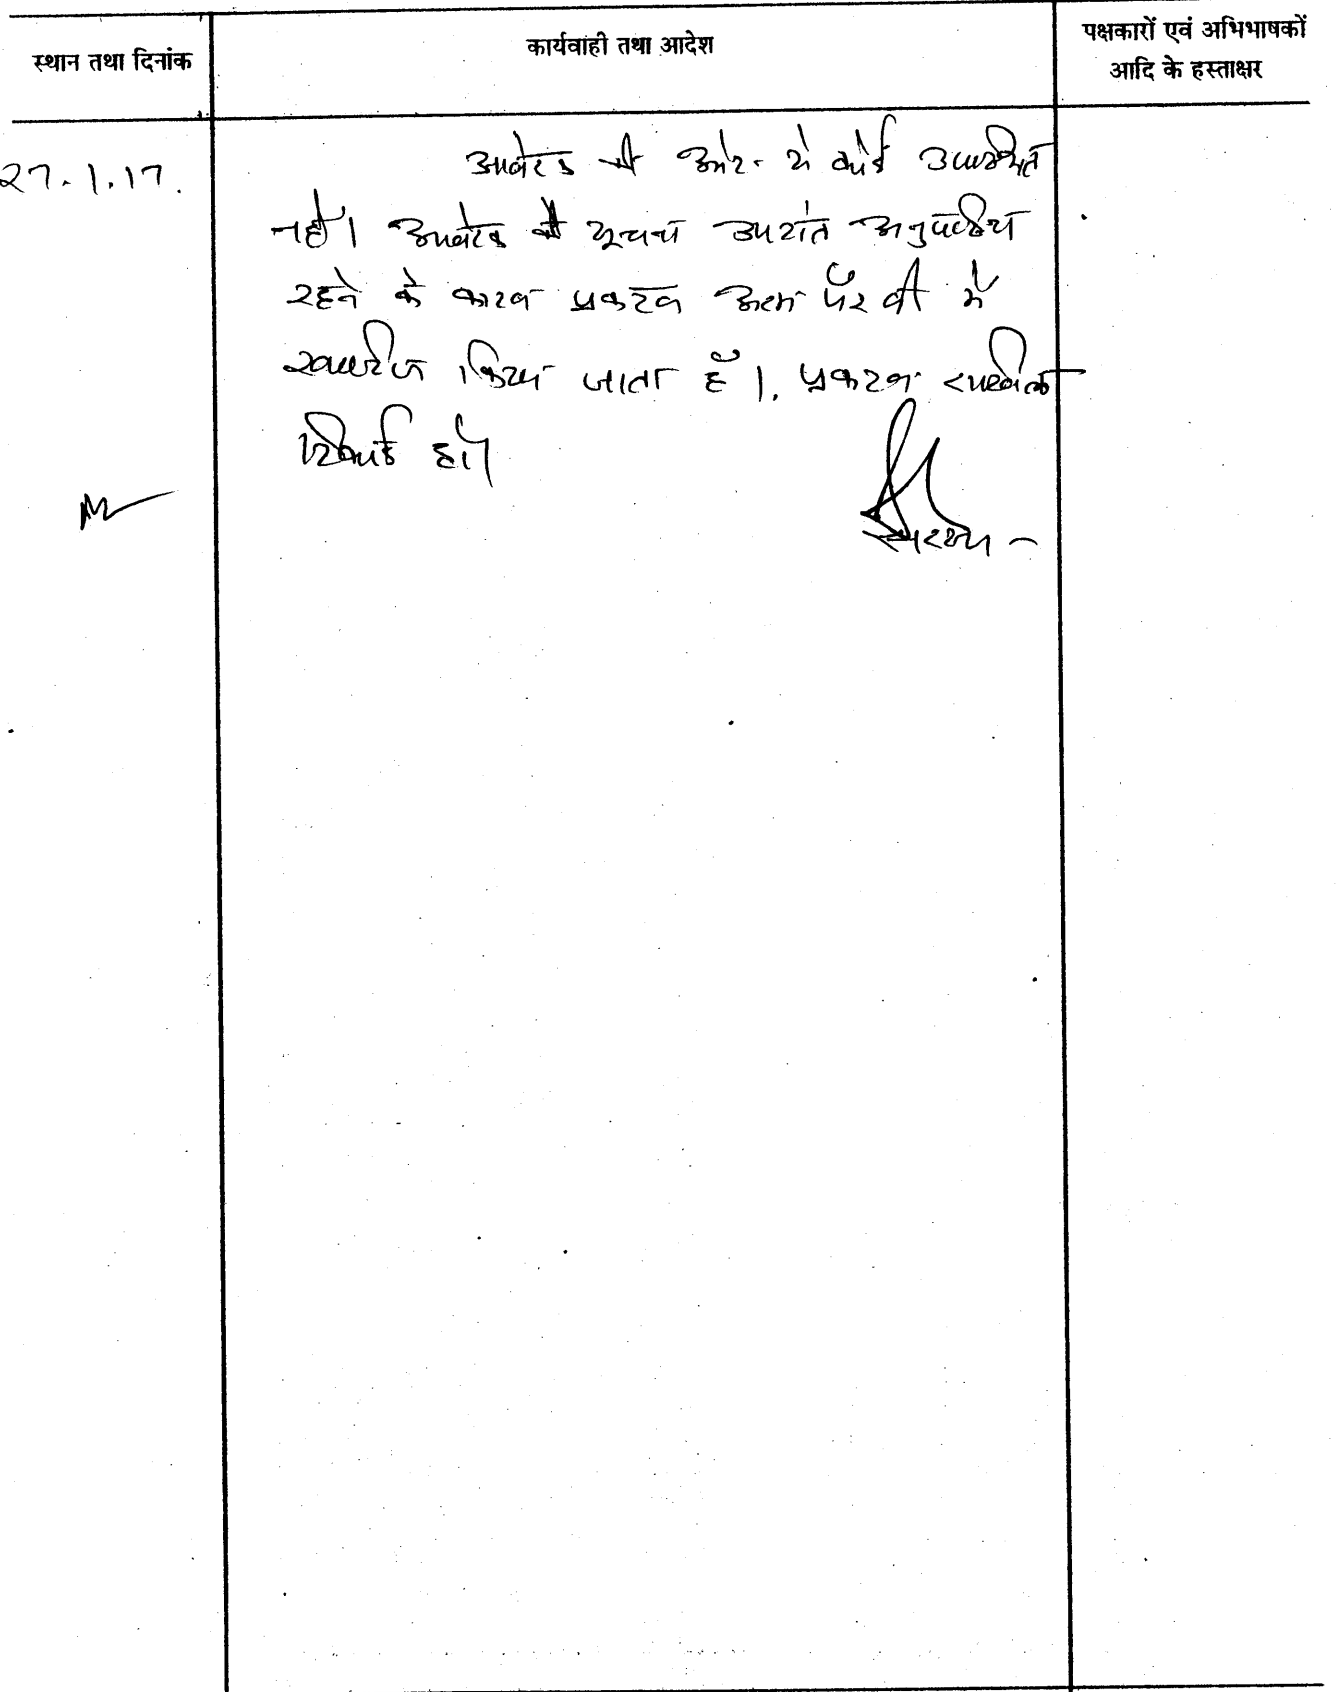 स्थान तथा दिनांक
कार्यवाही तथा आदेश
पक्षकारों एवं अभिभाषकों
आदि के हस्ताक्षर
27.1.17.
आवेदक की ओर से कोई उपस्थित
नहीं। आवेदक के सूचना उपरांत अनुपस्थित
रहने के कारण प्रकरण अदम पैरवी में
खारिज किया जाता है। प्रकरण दाखिल
रिकार्ड हो।
सदस्य